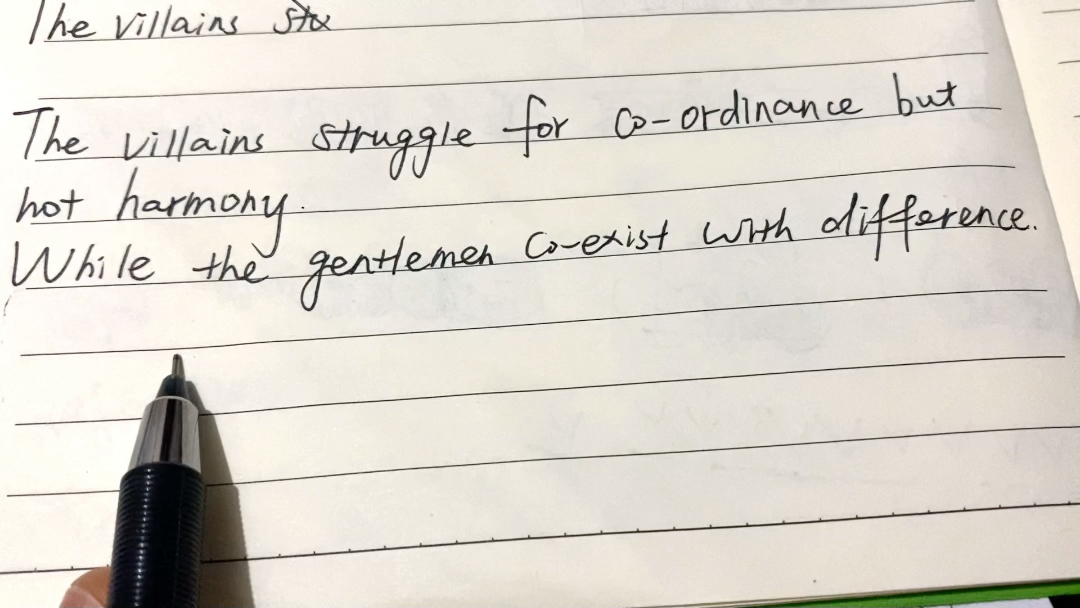 The villains stu
The villains struggle for co-ordinance but
not harmony.
While the gentlemen co-exist with difference.